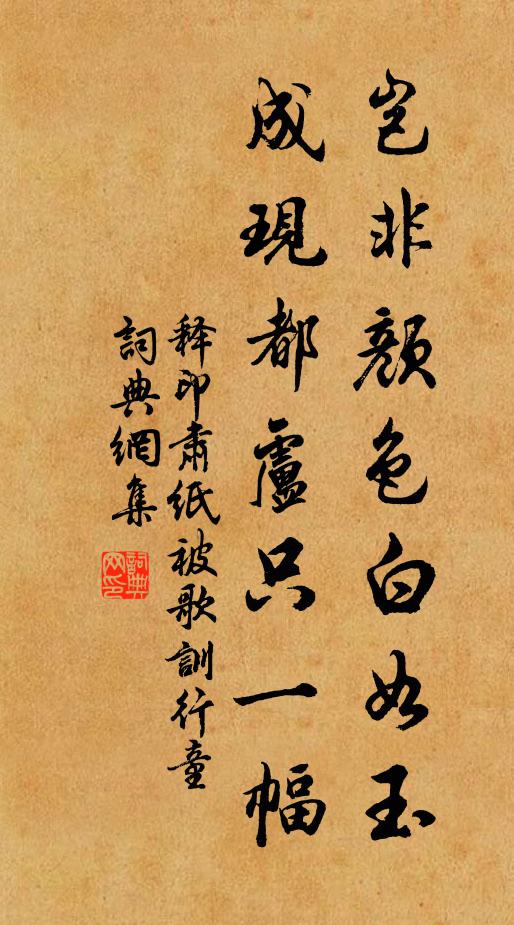 豈非顏色白如玉
成現都盧只一幅
释印肅紙被歌訓行童
詞典網集
詞典
网印